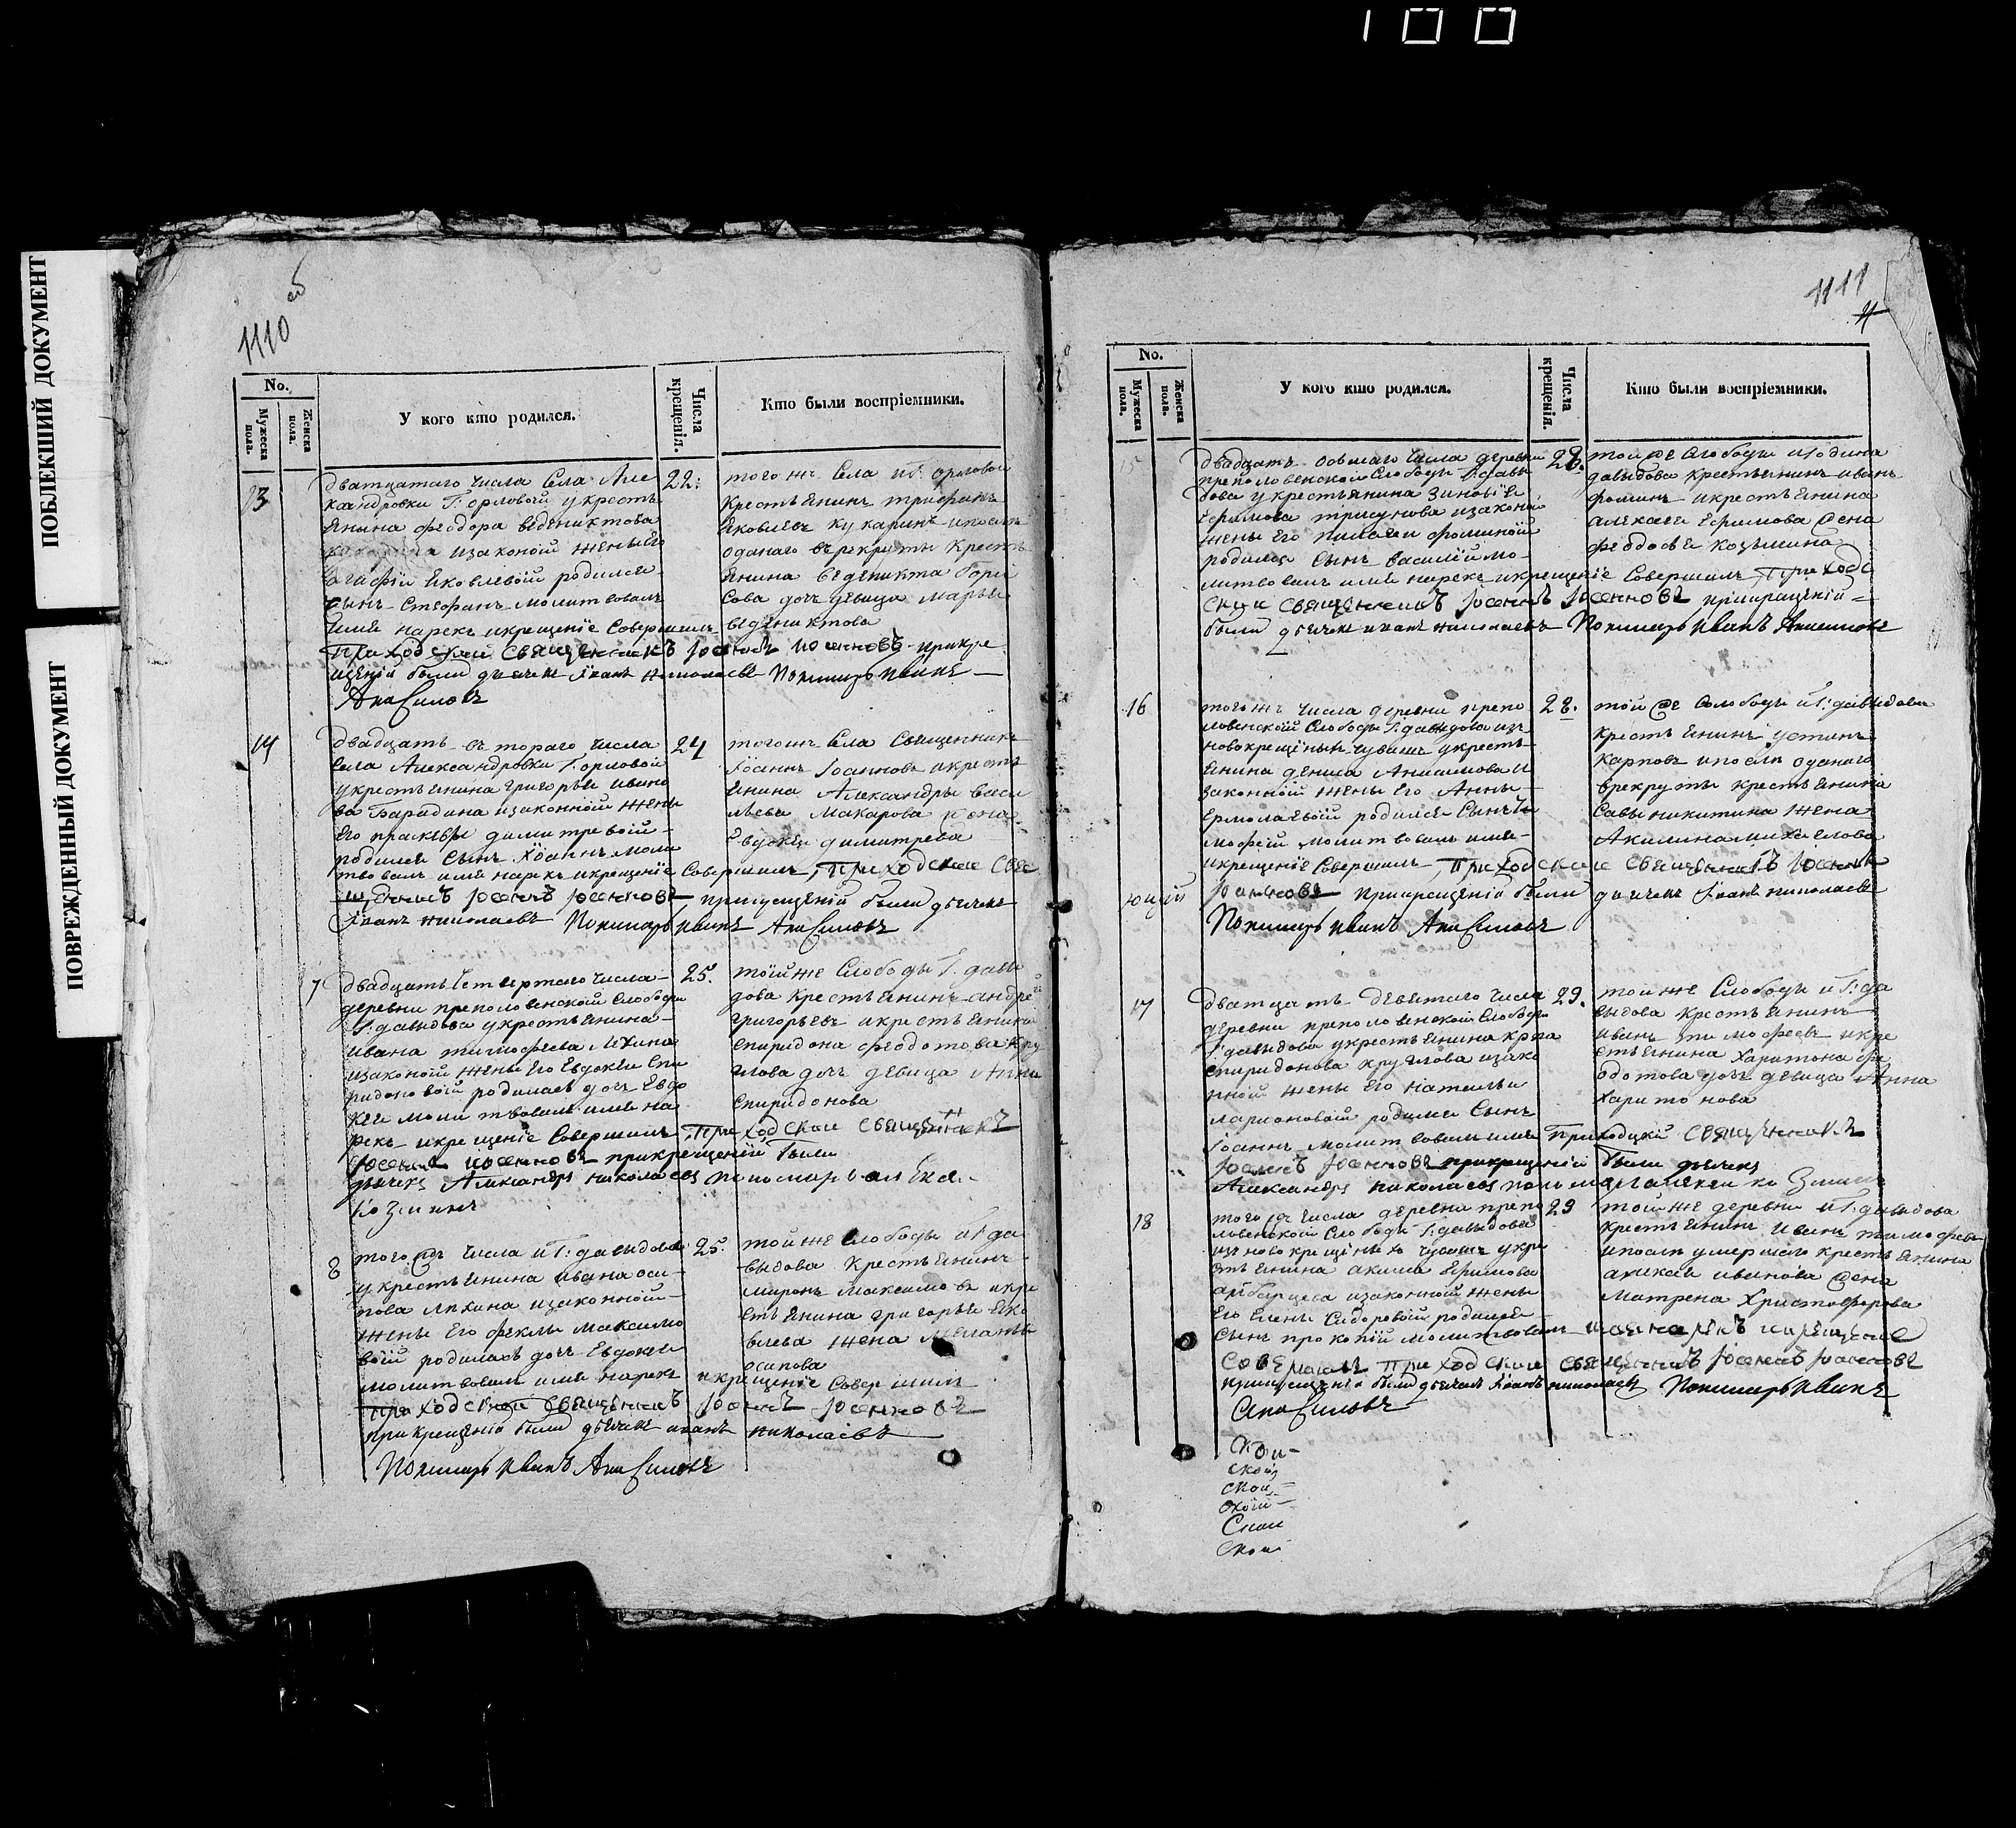 100
ПОБЛЕКШИЙ ДОКУМЕНТ
ПОВРЕЖДЕННЫЙ ДОКУМЕНТ
1110 об
No.
Мужеска пола.
Женска пола.
У кого кто родился.
Числа крещенія.
Кто были воспріемники.
13
дватцатаго числа села Але
ксандровки Г: орловой у кресть
янина феодора ведениктова
изаконой жены Его
агафіи яковлевой родился
сынъ Стефанъ молитвовалъ
имя нарекъ икрещеніе Совершилъ
Приходской священникъ Iоаннъ Iоанновъ прикре
щеніи были дьячекъ Iванъ николаевъ Пономарь Иванъ
Анасимовъ
22:
того же Села иГ: орловой
крестьянинъ трифанъ
яковлевъ кукаринъ ипослѣ
оданаго врекруты кресть
янина веденикта бори
сова дочь девица марья
ведениктова
14
двадцать втораго числа
села Александровки Г. орловой
у крестьянина григорья ивано
ва Барадина изаконной жены
Его прасковьи димитревой
родился сынъ Iоаннъ моли
твовалъ имя нарекъ икрещеніе Совершилъ Приходской свя
щенникъ Iоаннъ Iоанновъ прикрещеніи были дьячекъ
Iванъ николаевъ Пономарь Иванъ Анасимовъ
24
тогожъ Села Священникъ
Iоаннъ Iоанновъ икресть
янина Александры васи
льева Макарова жена
Евдокея димитрева
7
двадцать четвертаго числа
деревни преполовенской Слободы
Г: давыдова у крестьянина
ивана тимофеева Ляхина
изаконой жены Его Евдокеи Спи
ридоновой родилась дочь Евдо
кея молитвовалъ имя на
рекъ икрещеніе Совершилъ Приходской священникъ
Iоаннъ Iоанновъ прикрещеніи были
дьячекъ Александръ николаевъ пономарь алексей
Козминъ
25.
тойже Слободы Г. давы
дова крестьянинъ андрей
григорьевъ икрестьянина
Спиридона феодотова кру
глова дочь девица Анна
Спиридонова
8
того же числа иГ: давыдова
у крестьянина ивана оси
пова ляхина изаконной
жены Его феклы максимо
вой родилась дочь Евдокея
молитвовалъ имя нарекъ икрещеніе Совершилъ
приходской священникъ Iоаннъ Iоанновъ
прикрещеніи были дьячекъ иванъ николаевъ
Пономарь Иванъ Анасимовъ
25.
тойже слободы иГ да
выдова крестьянинъ
миронъ максимовъ икре
стьянина григорья яко
влева жена Меланья
осипова
1111
No.
Мужеска пола.
Женска пола.
У кого кто родился.
Числа крещенія.
Кто были воспріемники.
15
двадцать осьмаго числа деревни
преполовенской слободы Г. давы
дова у крестьянина зиновіе
Ефимова трисунова изаконой
жены Его пилагеи фоминой
родился сынъ василей мо
литвовалъ имя нарекъ икрещеніе Совершилъ Приход
ской священникъ Iоаннъ Iоанновъ прикрещеніи
были дьячекъ иванъ николаевъ Пономарь Иванъ Анасимовъ
28.
той же слободы иГодина
давыдова крестьянинъ иванъ
фоминъ икрестьянина
алексея Ефимова жена
феодосья козьмина
16
тогожъ числа деревни препо
ловенской Слободы Г: давыдова изъ
новокрещеныхъ чувашъ укресть
янина дениса Анисимова и
законной жены Его Анны
Ермолаевой родился Сынъ ти
мофей молитвовалъ имя
икрещеніе Совершилъ Приходской священникъ Iоаннъ
Iоанновъ прикрещеніи были дьячекъ Iванъ николаевъ
Пономарь Иванъ Анасимовъ
28.
той же слободы иГ: давыдова
крестьянинъ устинъ
карповъ ипослѣ оданаго
врекруты крестьянина
Савы никитина жена
Акилина михаелова
17
дватцать девятаго числа
деревни преполовенской Слободы
Г: давыдова у крестьянина
Спиридонова круглова изако
нной жены Его натальи
ларионовой родился Сынъ
Iоаннъ молитвовалъ имя Приходцкій священникъ
Iоаннъ Iоанновъ прикрещеніи были дьячекъ
Александръ николаевъ пономарь алексей козминъ
29.
тойже Слободы иГ: да
выдова крестьянинъ
иванъ тимофеевъ икре
стьянина харитона фе
одотова дочь девица Анна
харитонова
18
того же числа деревни препо
ловенской Слободы Г: давыдова
изъ новокрещеныхъ чувашъ укре
стьянина акима Ефимова
изаконной жены
Его Елены Сидоровой родился
сынъ прокопій молитвовалъ имя нарекъ икрещеніе
совершилъ приходской священникъ Iоаннъ Iоанновъ
прикрещеніи были дьячекъ Iванъ николаевъ Пономарь Иванъ
Анасимовъ
29
тойже деревни иГ: давыдова
крестьянинъ иванъ тимофеевъ
ипослѣ умершаго крестьянина
алексея иванова жена
матрена Христофорова
ской
ской
ской
ской
ской